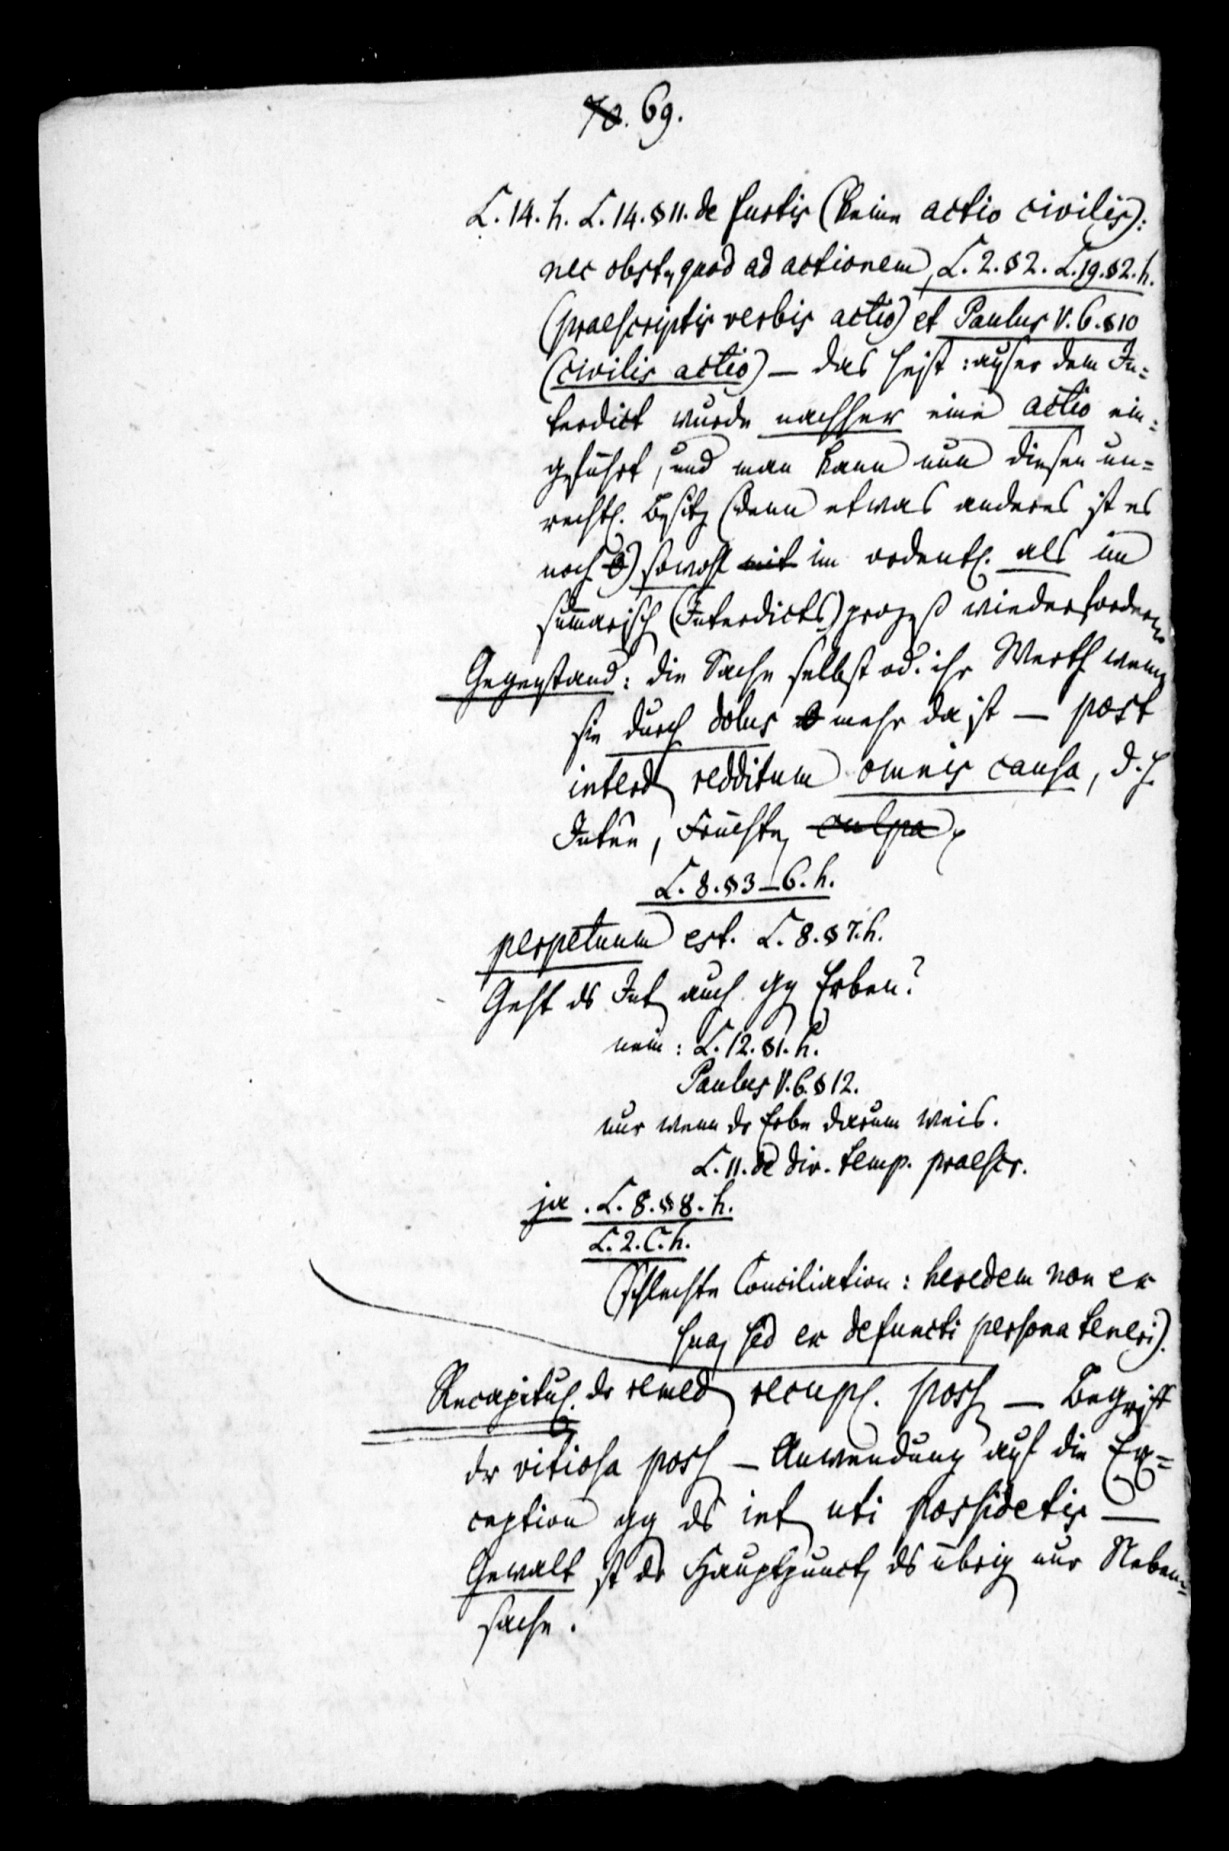 70. 69.
L. 14. h. L. 14. §11. de furtis (keine actio civilis):
nec obst. quod ad actionem, L. 2. §2. L. 19. §2. h.
(praescriptis verbis actio) et Paulus V. 6. §10
(civilis actio) — das heist: auser dem In=
terdict wurde nachher eine actio ein=
geführt, und man kann nun diesen un=
rechtl. Besitz (denn etwas anderes ist es
noch) sowohl mit im ordentl. als im
summarisch (Interdicts) prozeß wiederfordern
Gegenstand: die Sache selbst od. ihr Werth wenn
sie durch dolus mehr da ist — post
interd redditum omnis causa, d. h.
Früchte culpa
L. 8. §3–6. h.
perpetuum est. L. 8. §7. h.
Geht ds Int auch gg Erben?
nein: L. 12. §1. h.
Paulus V. 6. §12.
nur wenn dr Erbe darum weis.
L. 11. de div. temp. praescr.
ja. L. 8. §8. h.
L. 2. C. h.
(schlechte Conciliation: heredem non ex
sua sed ex defuncti persona teneri).
Recapitul. dr remed recup. poss — Begriff
dr vitiosa poss — Anwendung auf die Ex=
ception gg ds int uti possidetis —
Gewalt ist dr Hauptpunct, ds übrig nur Neben=
sache.